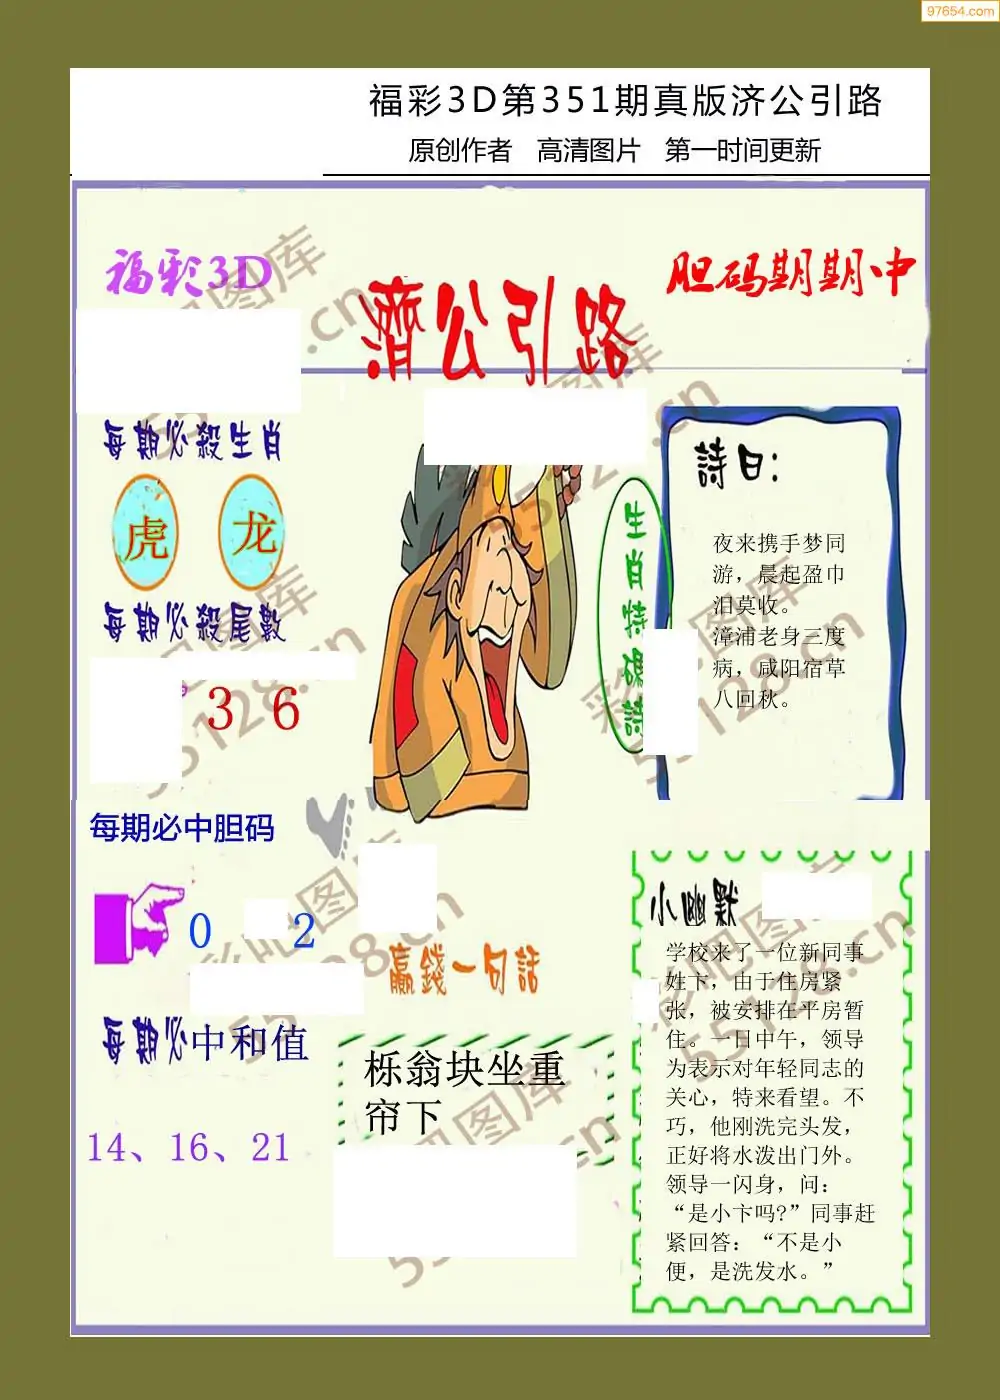 97654.com
福彩3D第351期真版济公引路
原创作者 高清图片 第一时间更新
福彩3D
胆码期期中
濟公引路
每期必殺生肖
虎 龙
每期必殺尾數
3 6
每期必中胆码
0 2
每期必中和值
14、16、21
生肖特碼詩
詩曰：
夜来携手梦同
游，晨起盈巾
泪莫收。
漳浦老身三度
病，咸阳宿草
八回秋。
贏錢一句話
栎翁块坐重
帘下
小幽默
学校来了一位新同事
姓卞，由于住房紧
张，被安排在平房暂
住。一日中午，领导
为表示对年轻同志的
关心，特来看望。不
巧，他刚洗完头发，
正好将水泼出门外。
领导一闪身，问：
“是小卞吗?”同事赶
紧回答：“不是小
便，是洗发水。”
彩吧图库
55128.cn